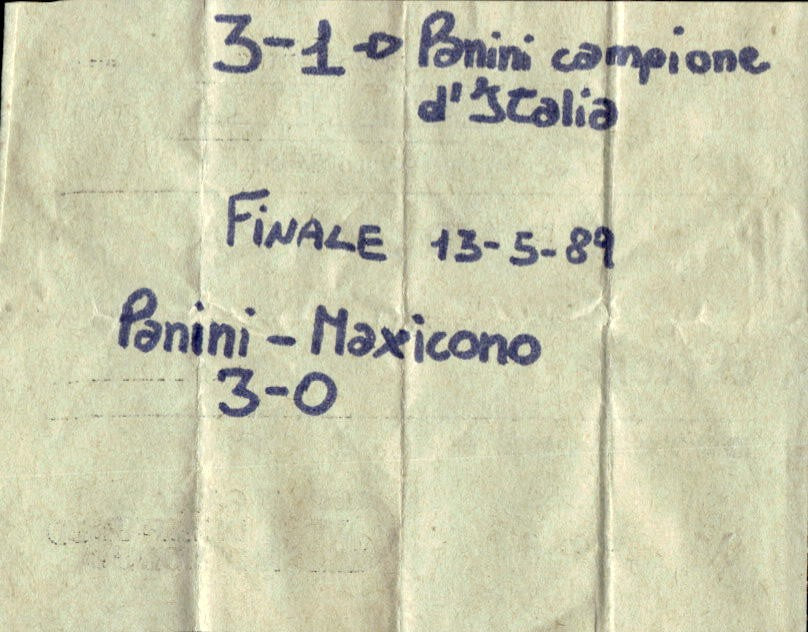 3-1 → Panini campione
d'Italia
FiNALE 13-5-89
Panini - Maxicono
3-0